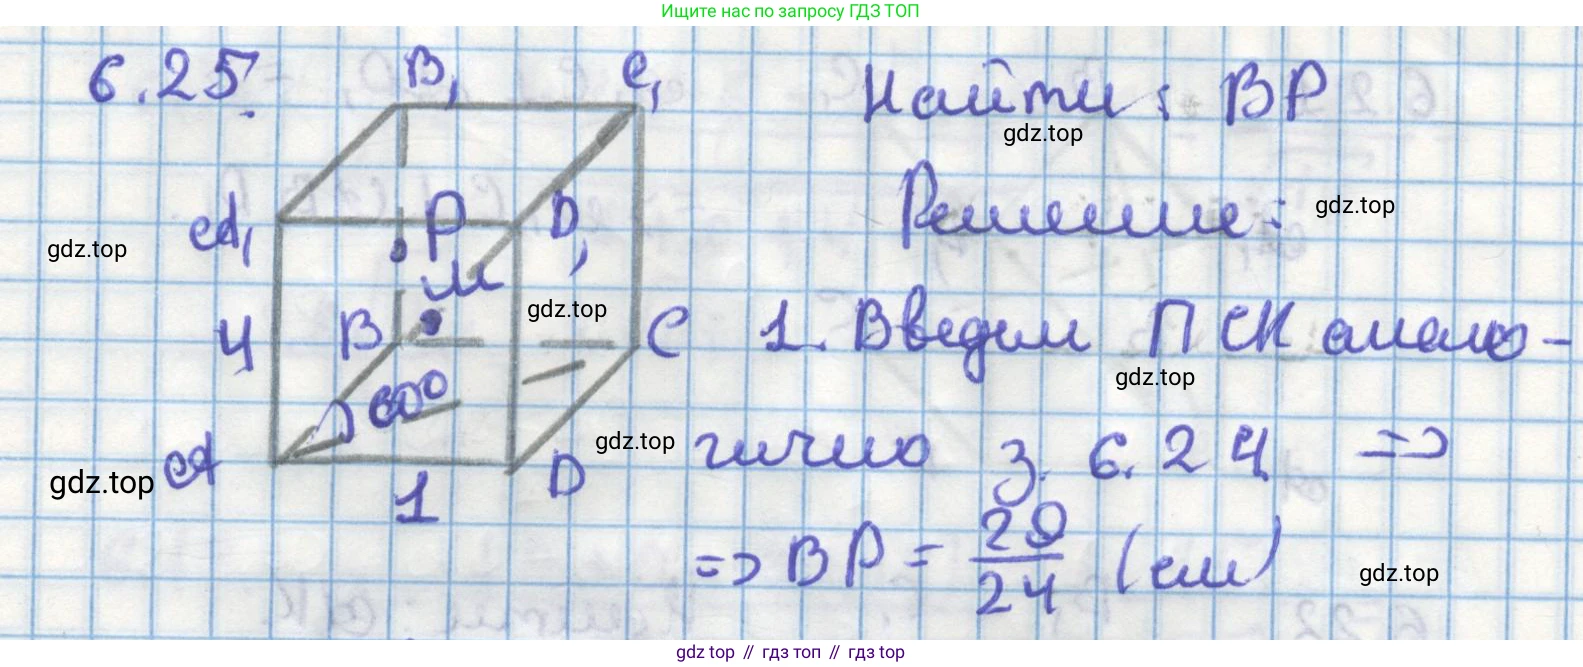 Ищите нас по запросу ГДЗ ТОП
6.25.
B₁
C₁
Найти: BP
gdz.top
A₁
P
D₁
Решение:
gdz.top
gdz.top
M
gdz.top
4
B
C
1. Введем ПСК анало-
gdz.top
60°
gdz.top
гично з. 6.24 =>
gdz.top
A
D
1
=> BP = 29/24 (см)
gdz.top
gdz.top // гдз топ // гдз top